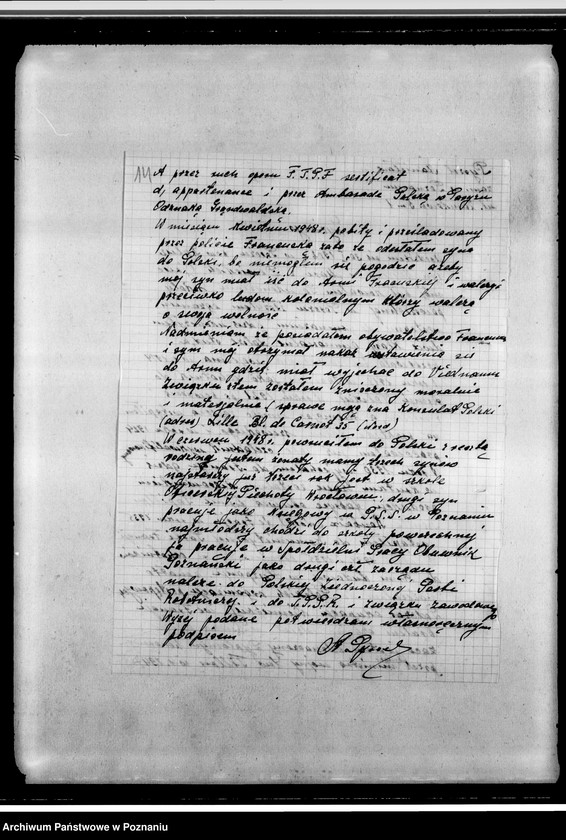 14 A przez ruch oporu F.T.P.F certificat
d, appartenance i przez Ambasade Polską w Paryżu
Odznaka Grunwaldzka.
W miesiącu Kwietniu 1948 r. pobity i prześladowany
przez policie Francuską za to że odesłałem syna
do Polski, bo niemogłem sie pogodzic ażeby
mój syn miał iść do Armi Francuskiej i walczyi
przeciwko ludom kolonialnym którzy walczą
o swoją wolność
Nadmieniam że posiadałem obywatelstwo Francuskie
i syn mój otrzymał nakaz stawienia sie
do Armi gdzie miał wyjechac do Viednamu
związku s tem zostałem zniszczony moralnie
i materjalnie (sprawe mą zna Konsulat Polski
(adres) Lille Bl. de Carnot 35 (Nord)
W czerwcu 1948 r. powrociłem do Polski z resztą
rodziny jestem żonaty mamy trzech synow
najstarszy już trzeci rok jest w szkole
Oficerskiej Piechoty Wrocławiu, drugi syn
pracuje jako księgowy w P.S.S. w Poznaniu
najmłodszy chodzi do szkoły powszechnej
Ja pracuje w Spółdzielni Pracy Obuwnik
Poznański jako drugi czł. zarządu
należe do Polskiej Zjednoczonej Partii
Robotniczej i do T.P.P.R. i związku zawodowego
Wyżej podane potwierdzam własnoręcznym
podpisem
Archiwum Państwowe w Poznaniu